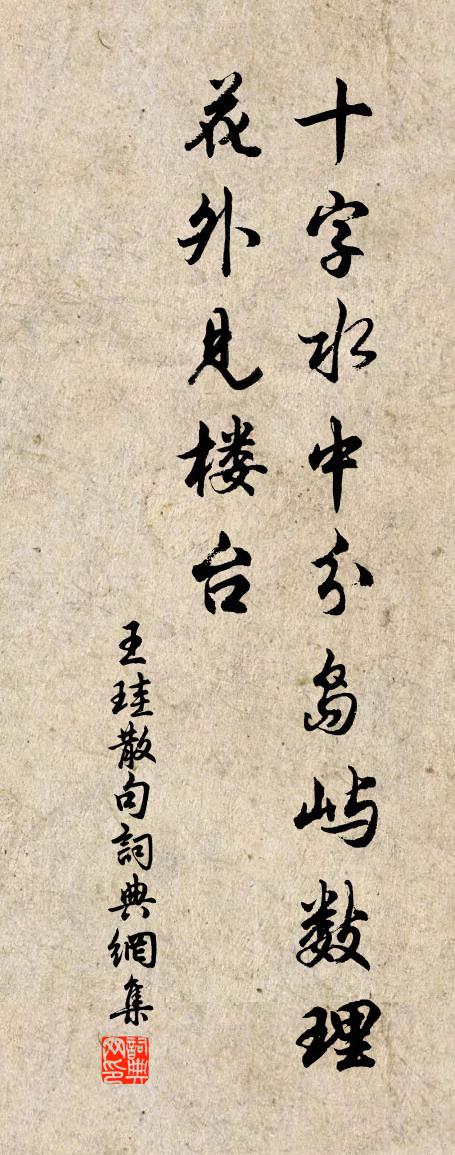 十字水中分岛屿数理
花外见楼台
王珪散句詞典網集
詞典网印